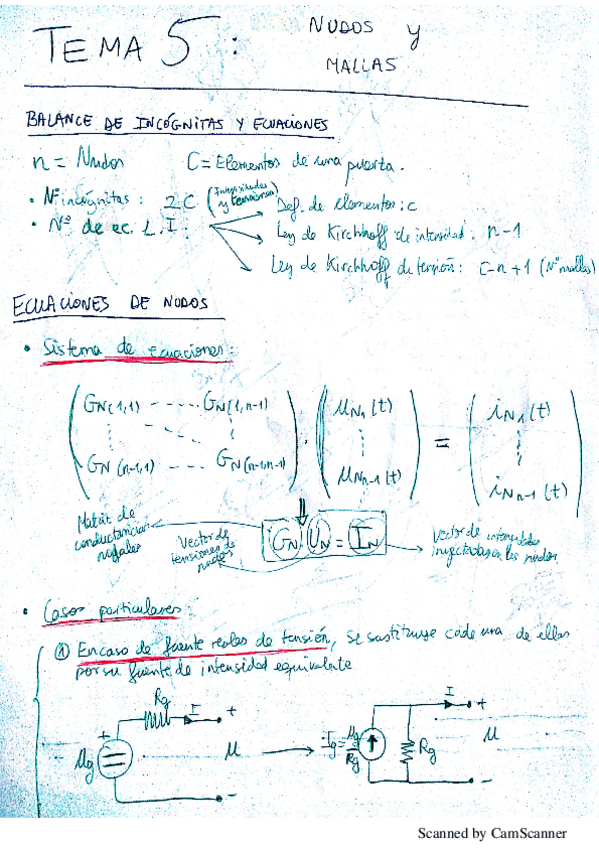 TEMA 5: NUDOS y
MALLAS
BALANCE DE INCÓGNITAS Y ECUACIONES
n = Nudos C = Elementos de una puerta.
• Nº incógnitas: 2C (Intensidades y tensiones)
• Nº de ec. L.I:
Def. de elementos: c
Ley de Kirchhoff de intensidad: n-1
Ley de Kirchhoff de tensión: c-n+1 (Nº mallas)
ECUACIONES DE NUDOS
• Sistema de ecuaciones:
GN(1,1) ---- GN(1,n-1) UN1(t) iN1(t)
· =
GN(n-1,1) --- GN(n-1,n-1) UNn-1(t) iNn-1(t)
Matriz de
conductancias
nodales
Vector de
tensiones de
nudos
GN · UN = IN
Vector de intensidades
inyectadas en los nudos
• Casos particulares:
① En caso de fuente reales de tensión, se sustituye cada una de ellas
por su fuente de intensidad equivalente
Rg I +
+
Ug U
-
I +
Ig = Ug/Rg Rg U
-
Scanned by CamScanner